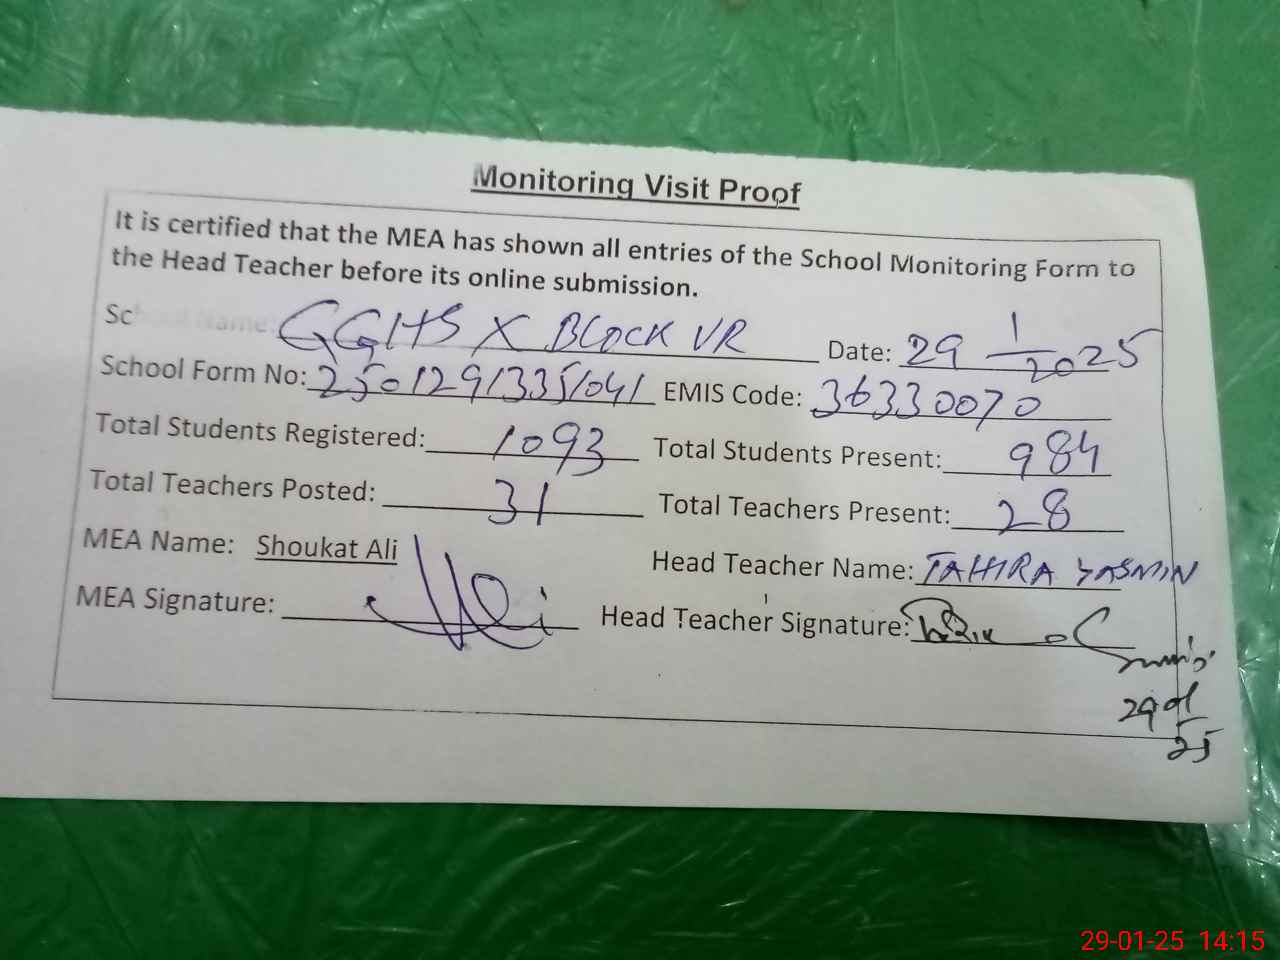 Monitoring Visit Proof
It is certified that the MEA has shown all entries of the School Monitoring Form to
the Head Teacher before its online submission.
School Name: GGHS X BLOCK VR Date: 29/1/2025
School Form No: 25012913351041 EMIS Code: 36330070
Total Students Registered: 1093 Total Students Present: 984
Total Teachers Posted: 31 Total Teachers Present: 28
MEA Name: Shoukat Ali Head Teacher Name: TAHIRA YASMIN
MEA Signature: Head Teacher Signature:
29 01
25
29-01-25 14:15